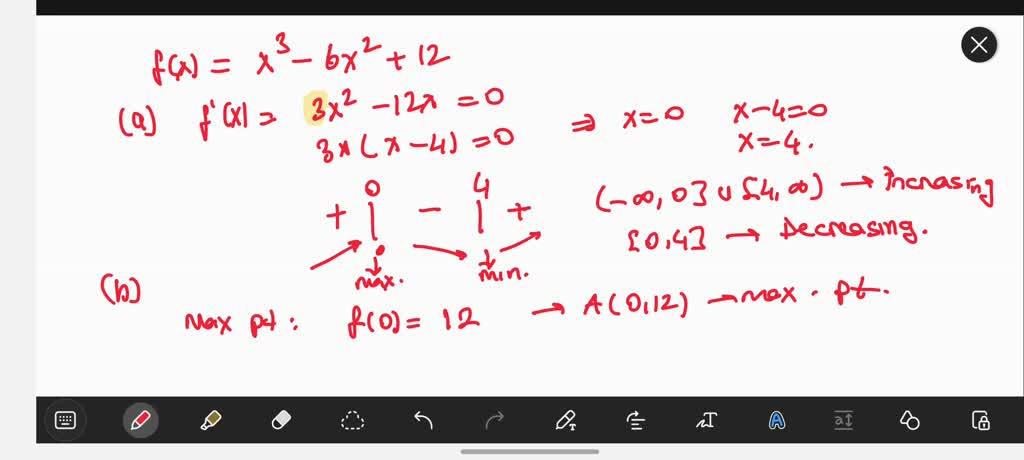 f(x) = x³ - 6x² + 12
(a) f'(x) = 3x² - 12x = 0
3x(x - 4) = 0 ⇒ x = 0 x - 4 = 0
x = 4.
0 4
+ - +
(-∞, 0] ∪ [4, ∞) → Increasing
[0, 4] → Decreasing.
max. min.
(b)
Max pt : f(0) = 12 → A(0, 12) → max. pt.